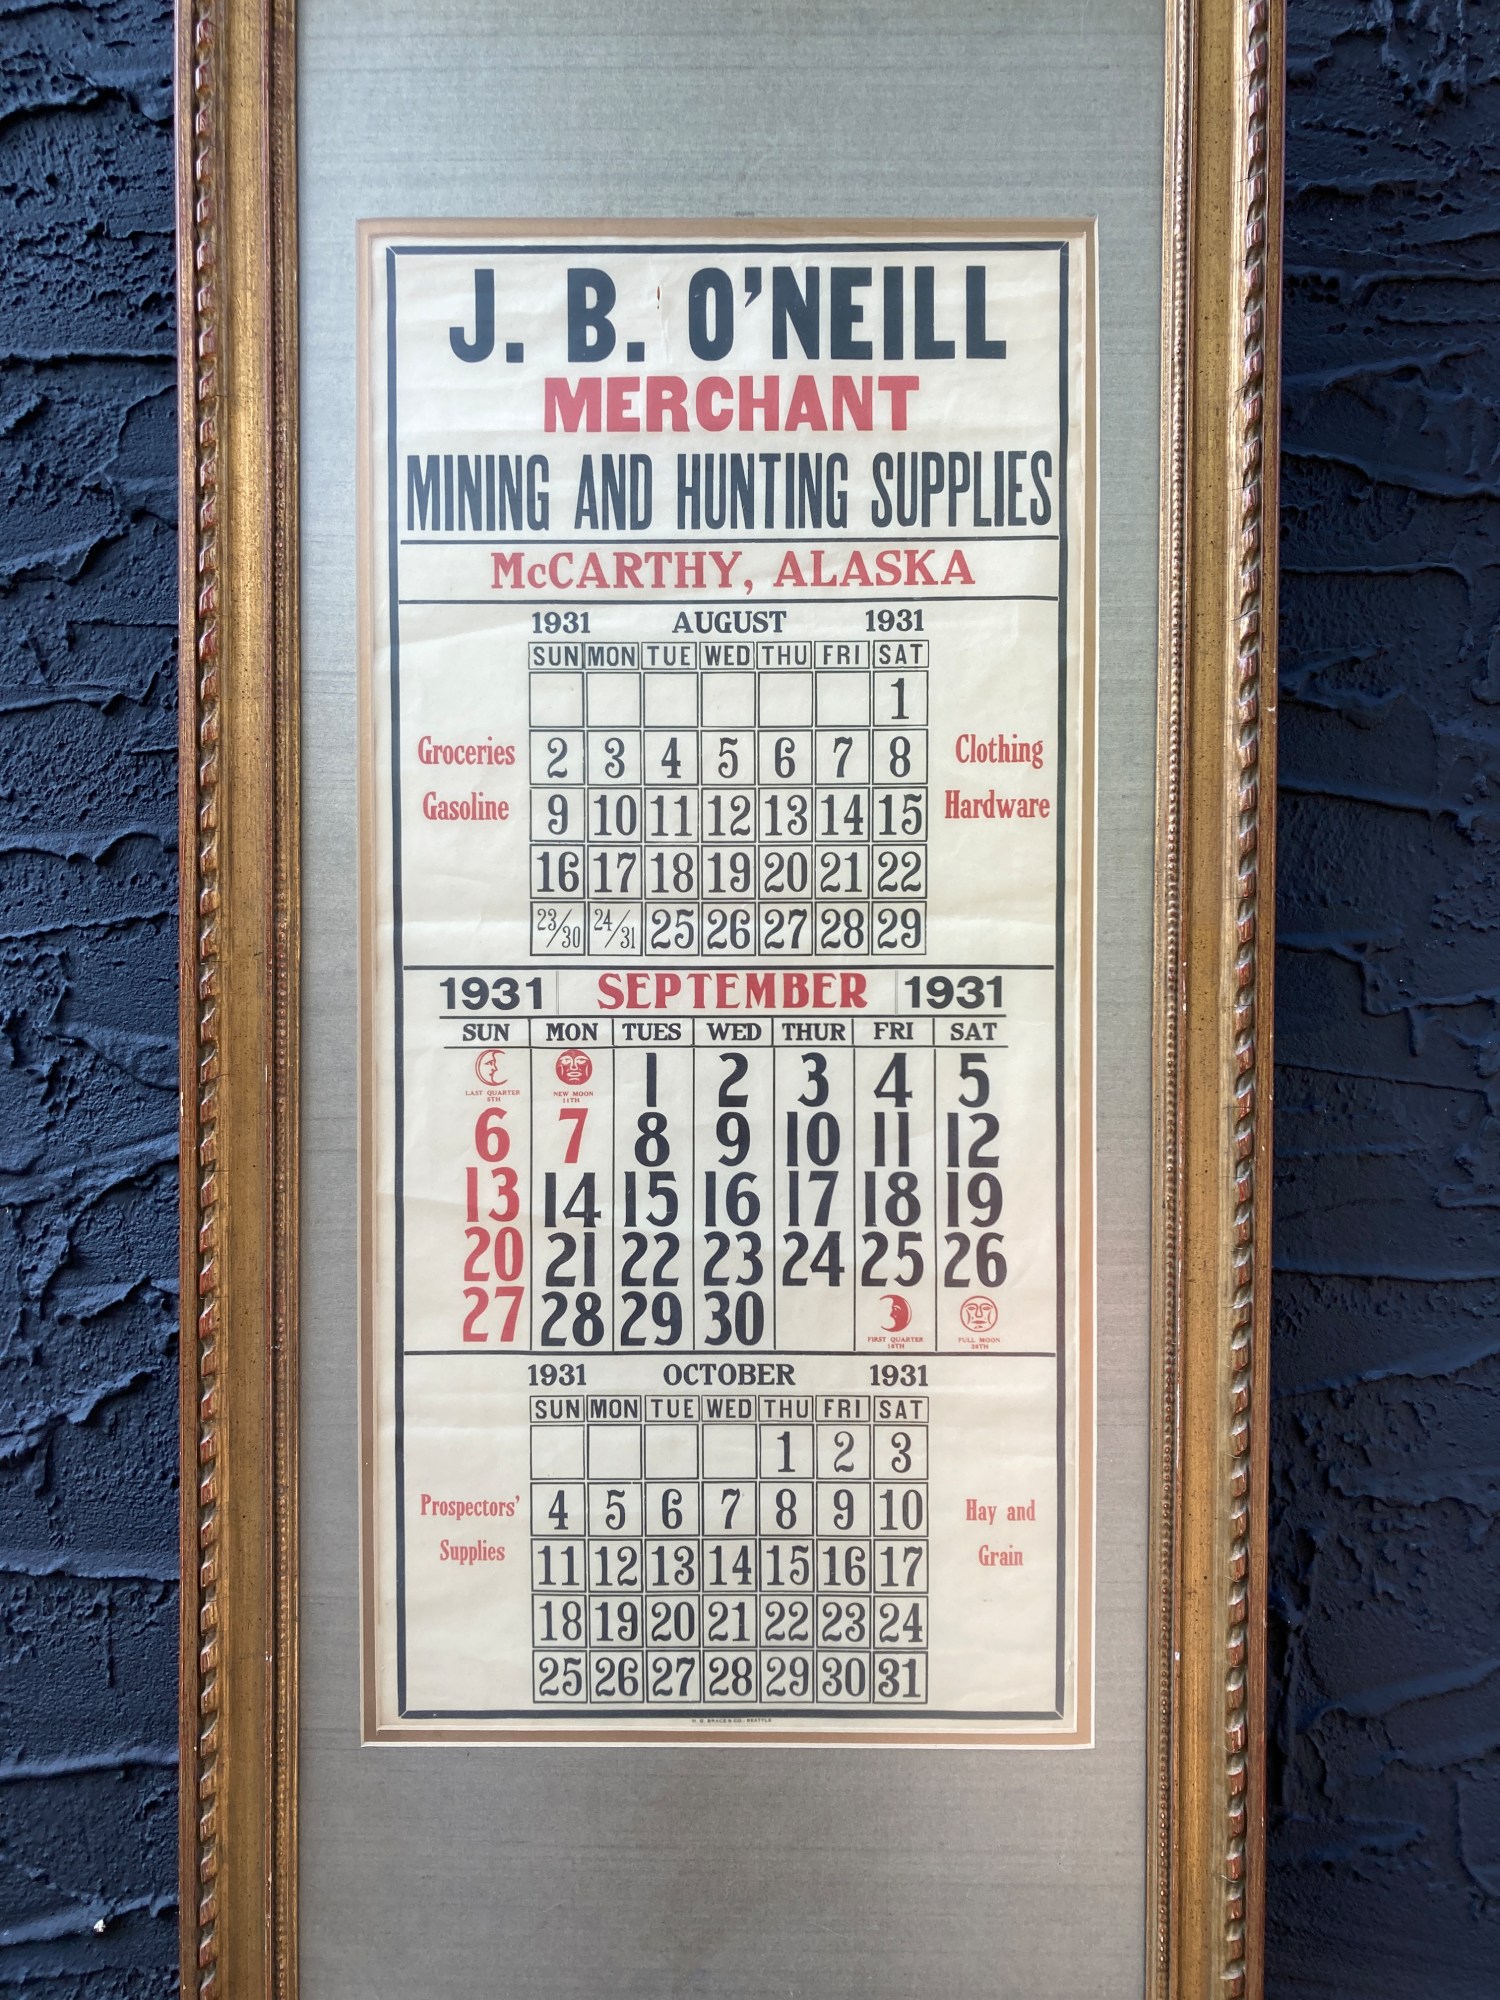 J. B. O'NEILL
MERCHANT
MINING AND HUNTING SUPPLIES
McCARTHY, ALASKA
1931 AUGUST 1931
SUN MON TUE WED THU FRI SAT
1
Groceries 2 3 4 5 6 7 8 Clothing
Gasoline 9 10 11 12 13 14 15 Hardware
16 17 18 19 20 21 22
23/30 24/31 25 26 27 28 29
1931 SEPTEMBER 1931
SUN MON TUES WED THUR FRI SAT
1 2 3 4 5
LAST QUARTER NEW MOON
5TH 11TH
6 7 8 9 10 11 12
13 14 15 16 17 18 19
20 21 22 23 24 25 26
27 28 29 30
FIRST QUARTER FULL MOON
18TH 26TH
1931 OCTOBER 1931
SUN MON TUE WED THU FRI SAT
1 2 3
Prospectors' 4 5 6 7 8 9 10 Hay and
Supplies 11 12 13 14 15 16 17 Grain
18 19 20 21 22 23 24
25 26 27 28 29 30 31
& CO., SEATTLE